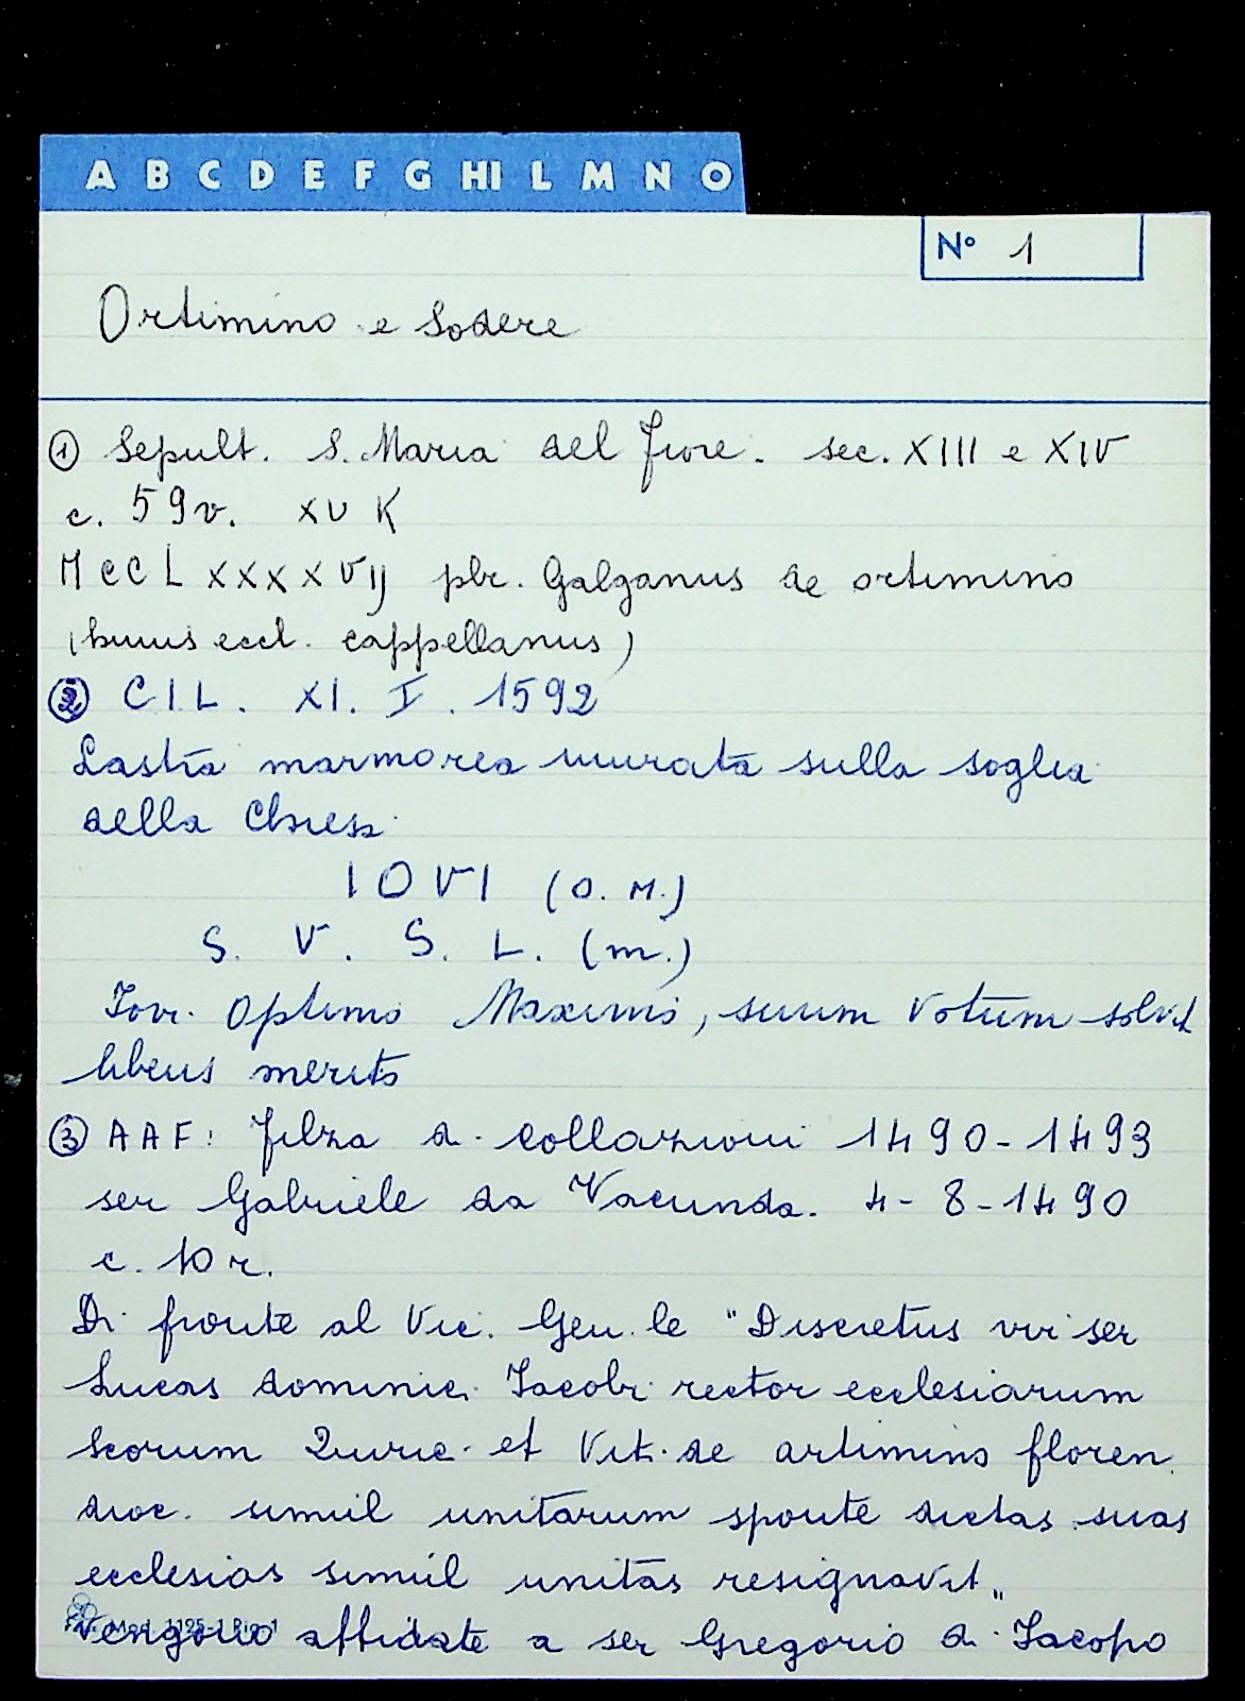 A B C D E F G HI L M N O
N° 1
Ortimino e Sodere
① Sepult. S. Maria del fiore. sec. XIII e XIV
c. 59v. XV K
M C C L X X X X V IJ pbr. Galganus de ortimino
(huius eccl. cappellanus)
② C I L. XI. I. 1592
Lastra marmorea murata sulla soglia
della Chiesa
I O V I (O. M.)
S. V. S. L. (m.)
Iovi Optimo Maximo, suum votum solvit
libens merito
③ A A F: filza di collazioni 1490-1493
ser Gabriele da Vacunda. 4-8-1490
c. 10 r.
Di fronte al Vic. Gen.le "Discretus vir ser
Lucas dominici Iacobi rector ecclesiarum
Scorum Quirici et Vit. de artimino floren.
dioc. simul unitarum sponte dictas suas
ecclesias simul unitas resignavit"
Vengono affidate a ser Gregorio di Iacopo